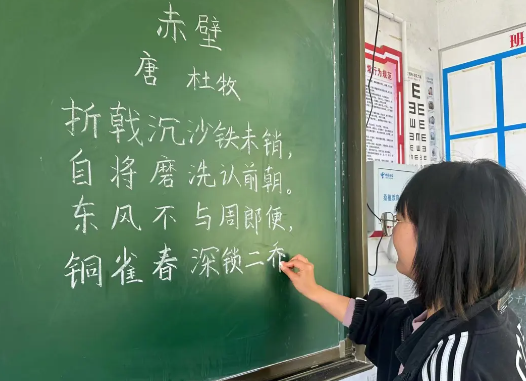 赤壁
唐 杜牧
折戟沉沙铁未销,
自将磨洗认前朝。
东风不与周郎便,
铜雀春深锁二乔
行为规范
班